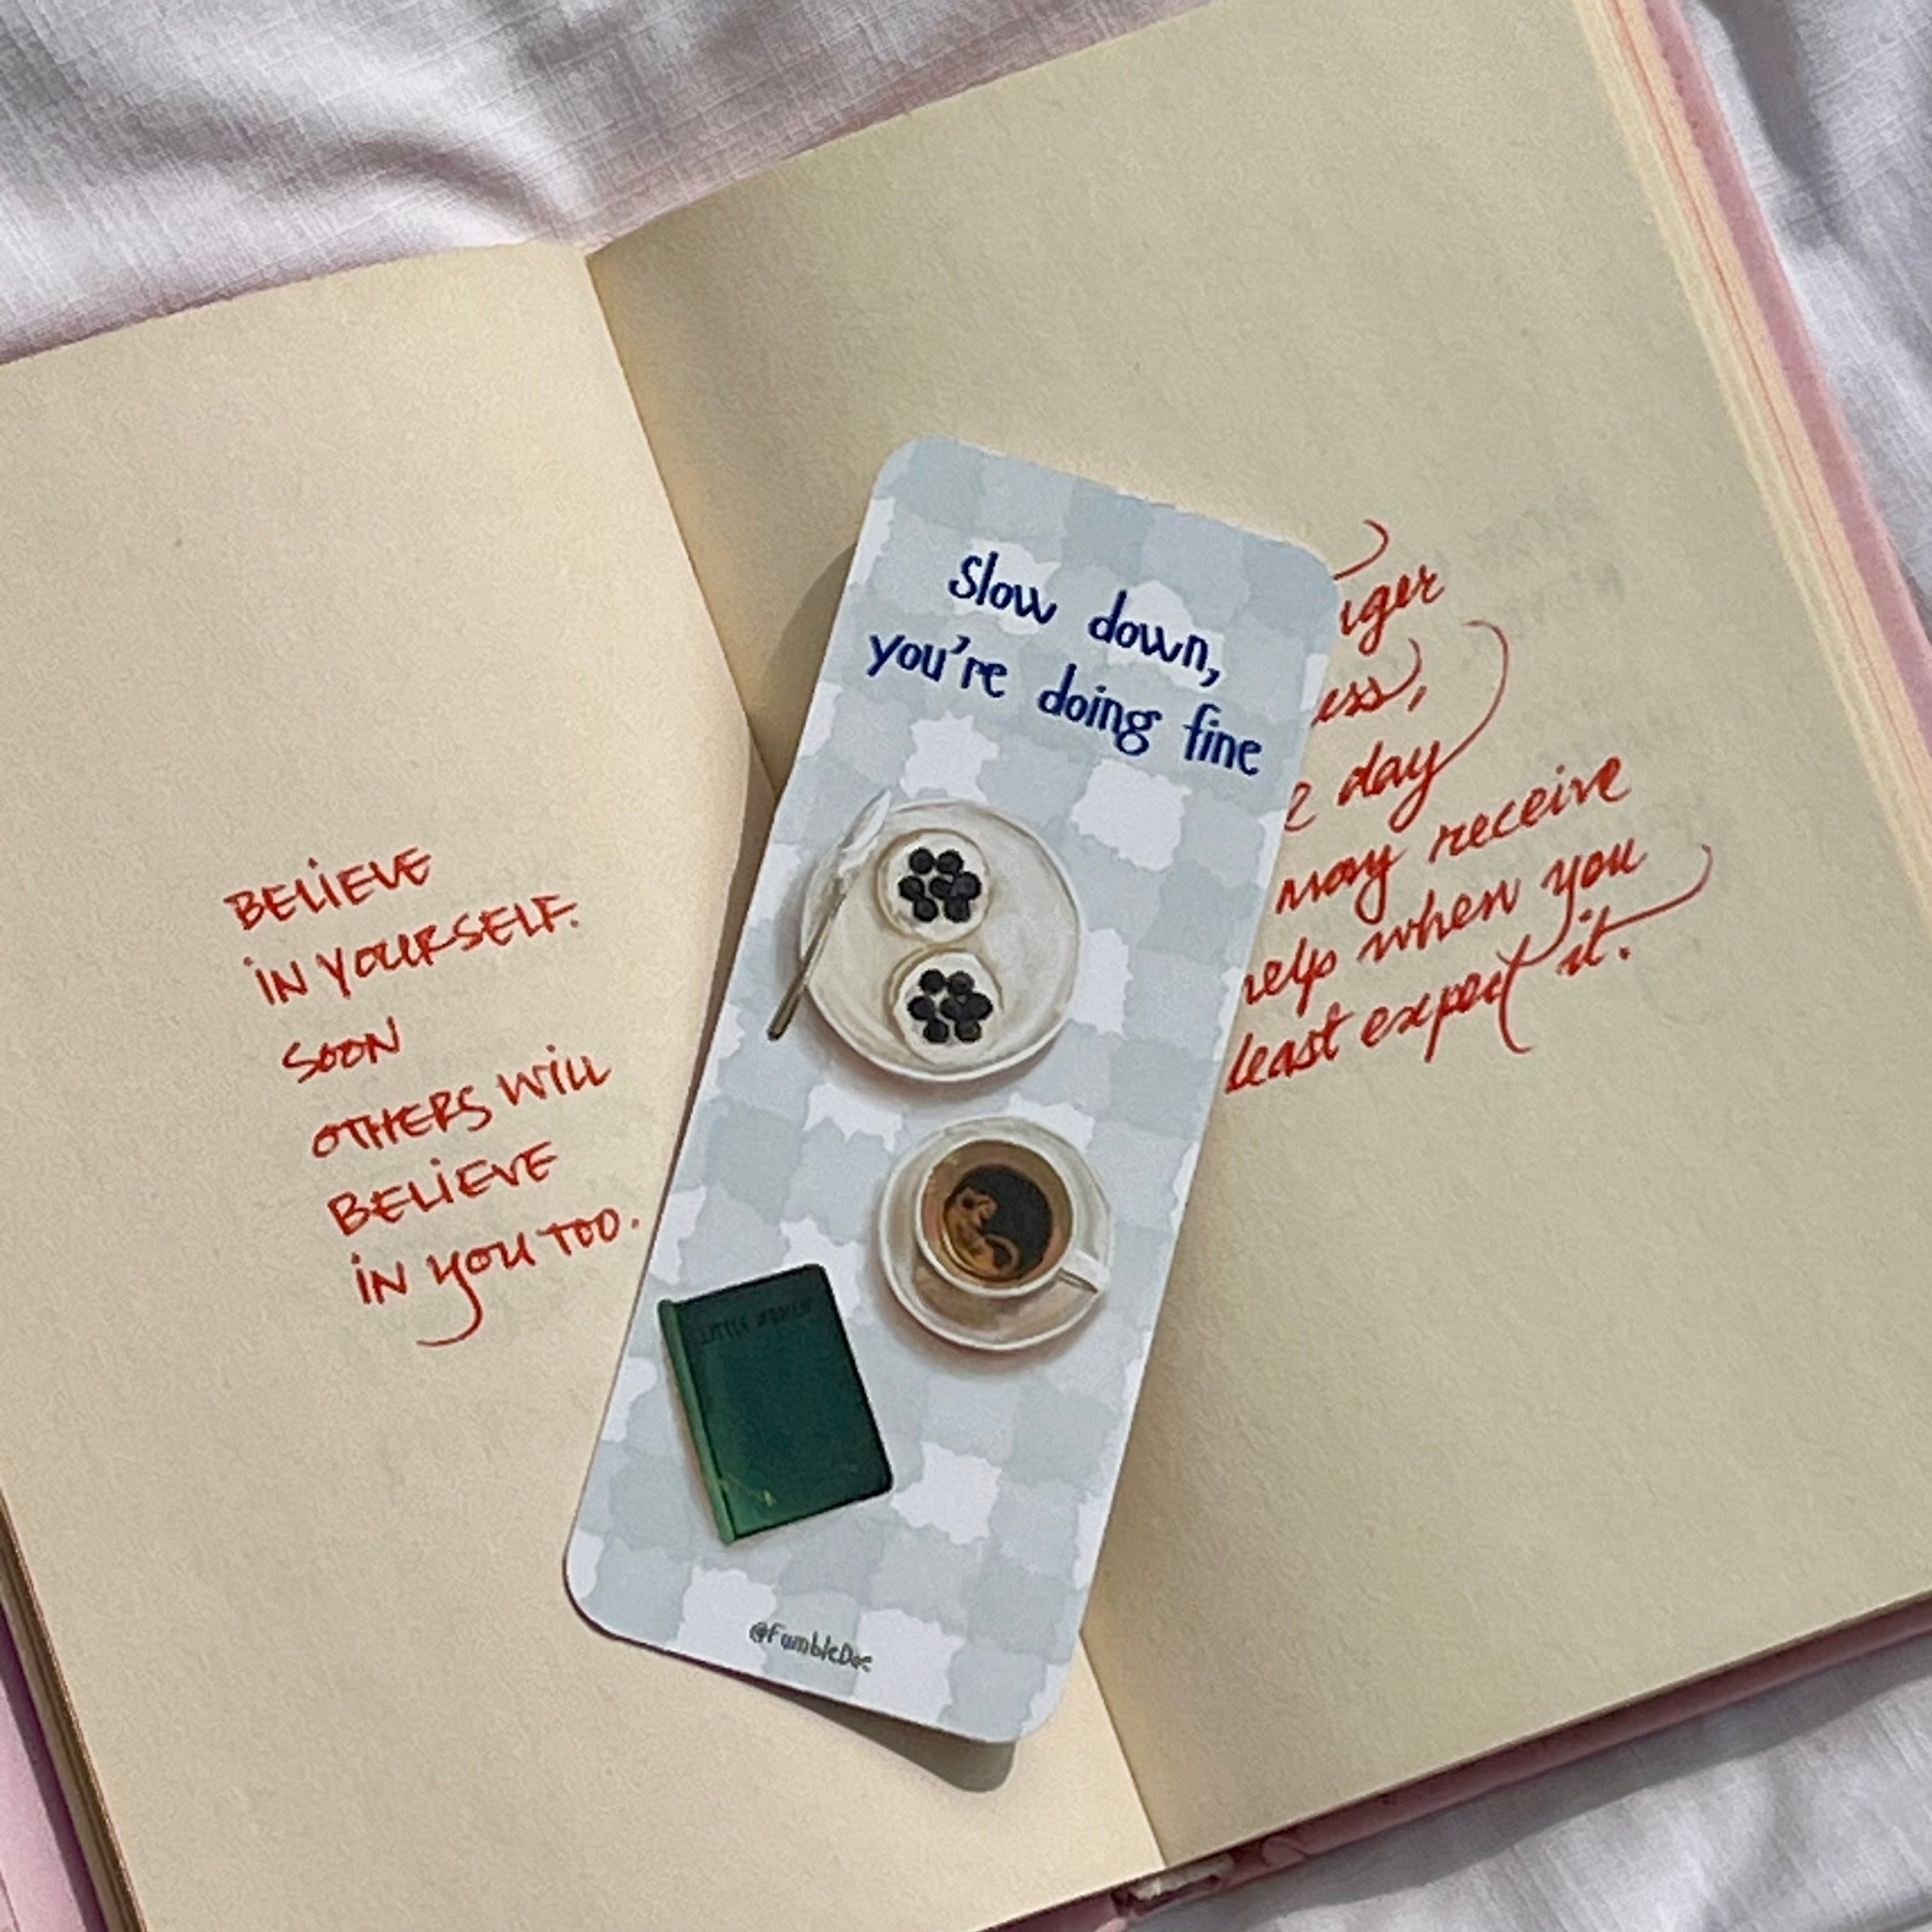 BELIEVE
IN YOURSELF.
SOON
OTHERS WILL
BELIEVE
IN YOU TOO.
Slow down,
you're doing fine
LITTLE WOMEN
@FumbleDoe
day
may receive
help when you
least expect it.